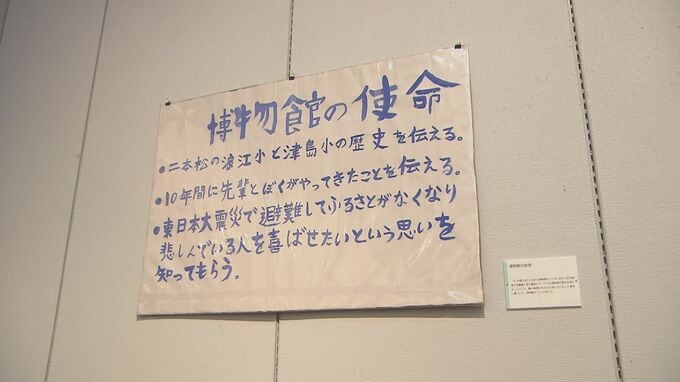 博物館の使命
•二本松の浪江小と津島小の歴史を伝える。
•10年間に先輩とぼくがやってきたことを伝える。
•東日本大震災で避難してふるさとがなくなり
悲しんでいる人を喜ばせたいという思いを
知ってもらう。
博物館の使命